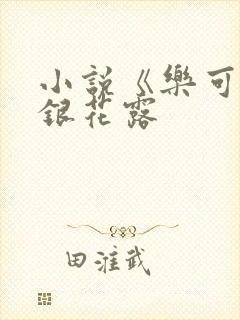 小說《樂可
銀花露
田滩武